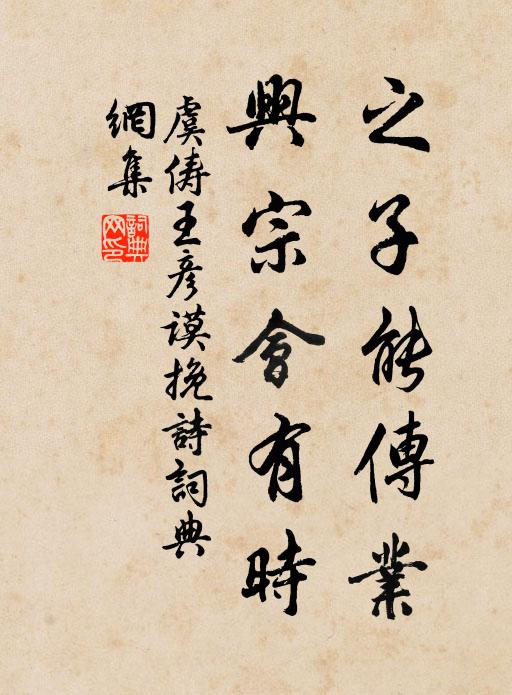 之子能傳業
興宗會有時
虞儔王彥謨挽詩詞典
網集
詞典網印